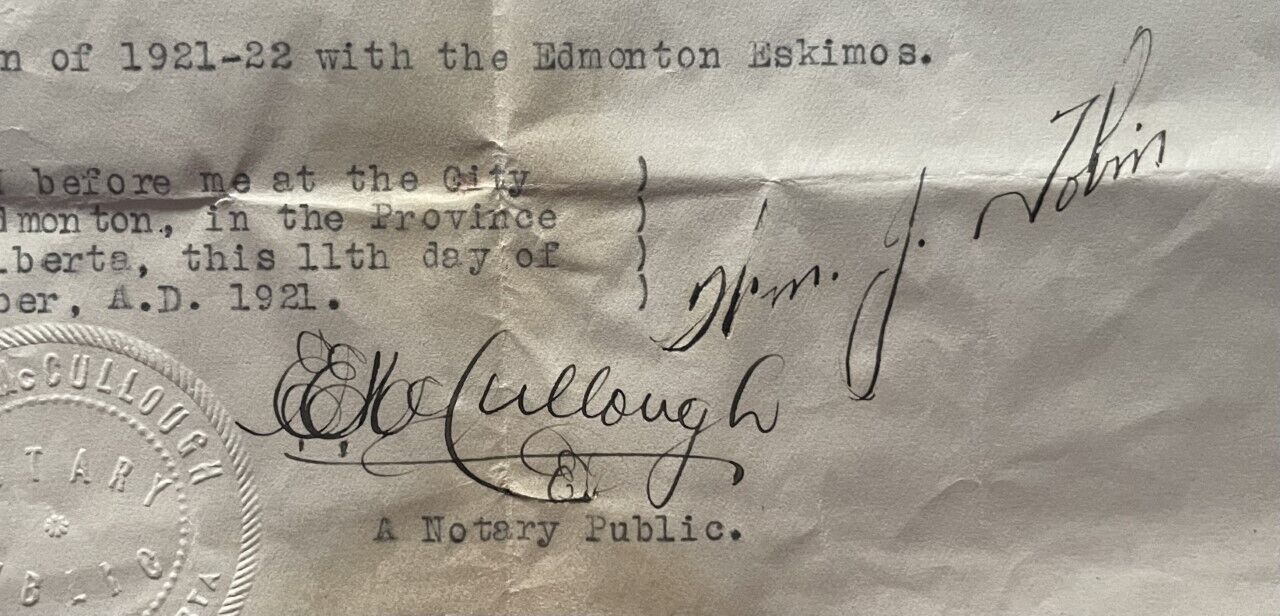 n of 1921-22 with the Edmonton Eskimos.
before me at the City
dmonton, in the Province
lberta, this 11th day of
ber, A.D. 1921.
Wm. J. Tobin
E E McCullough
A Notary Public.
McCULLOUGH
TARY
BLIC
RTA